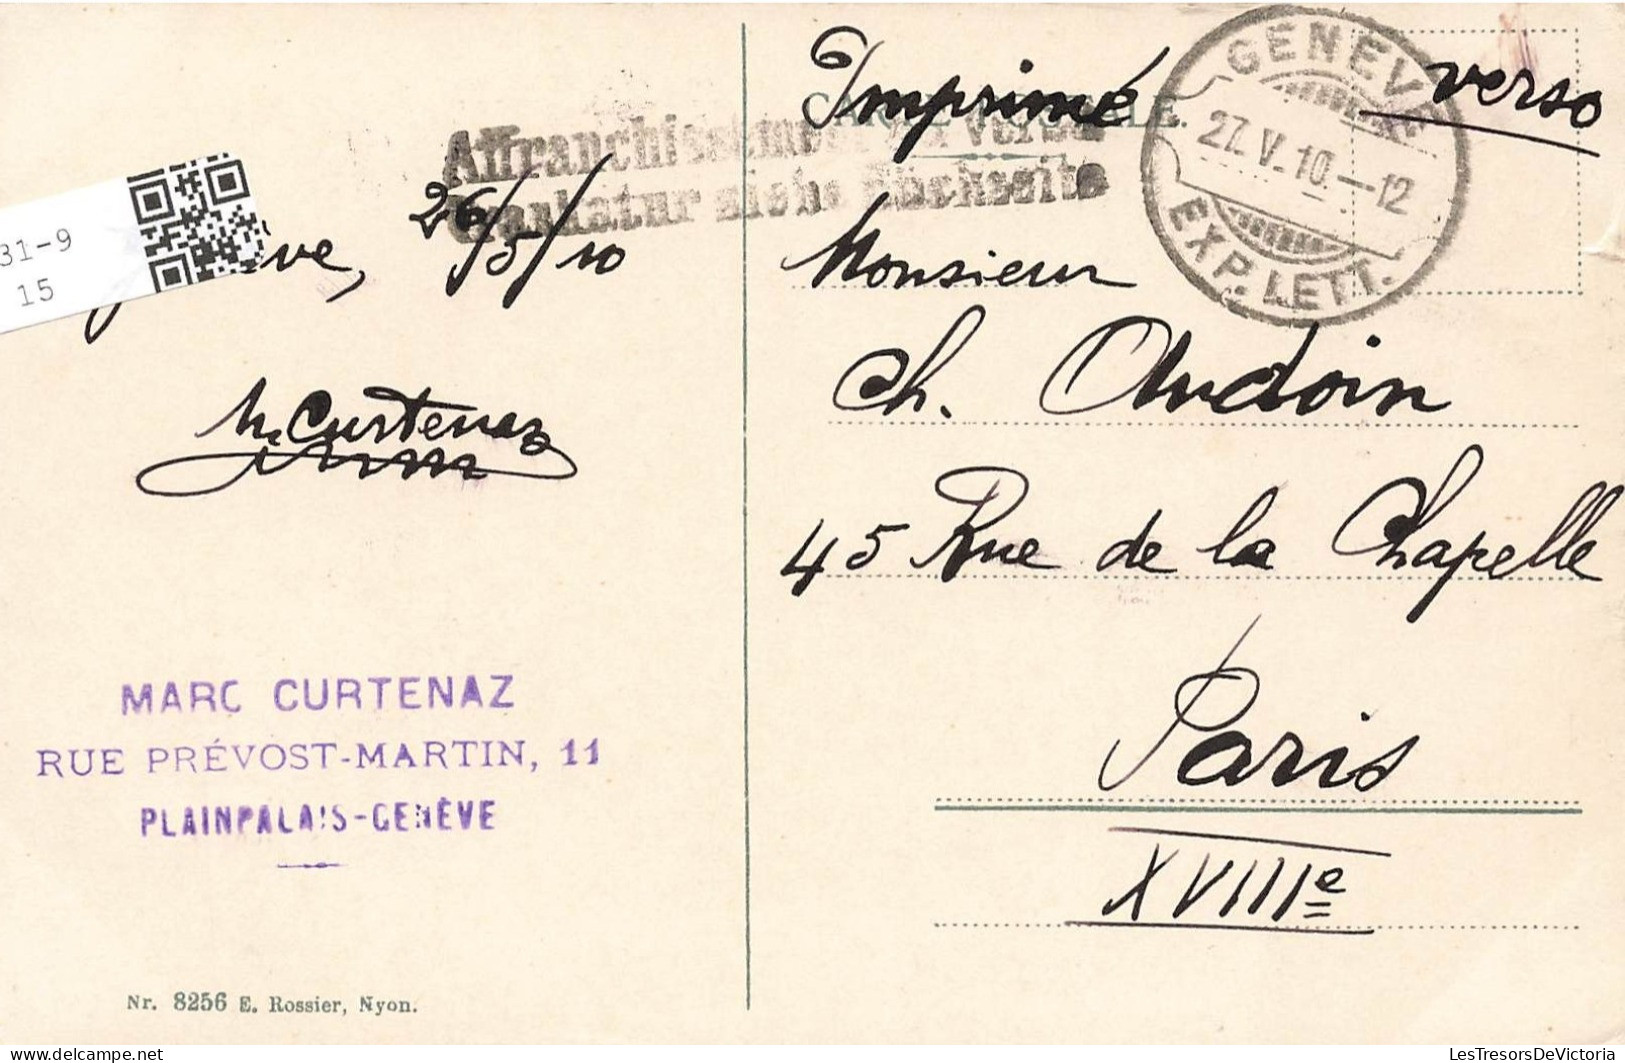 Imprimé verso
CARTE POSTALE.
GENÈVE
27.V.10.-12
EXP. LETT.
Affranchissement au verso
Frankatur siehe Rückseite
31-9
15
26/5/10
M. Curtenaz
MARC CURTENAZ
RUE PRÉVOST-MARTIN, 11
PLAINPALAIS-GENÈVE
Nr. 8256 E. Rossier, Nyon.
Monsieur
Ch. Audoin
45 Rue de la Chapelle
Paris
XVIIIe
delcampe.net
LesTresorsDeVictoria